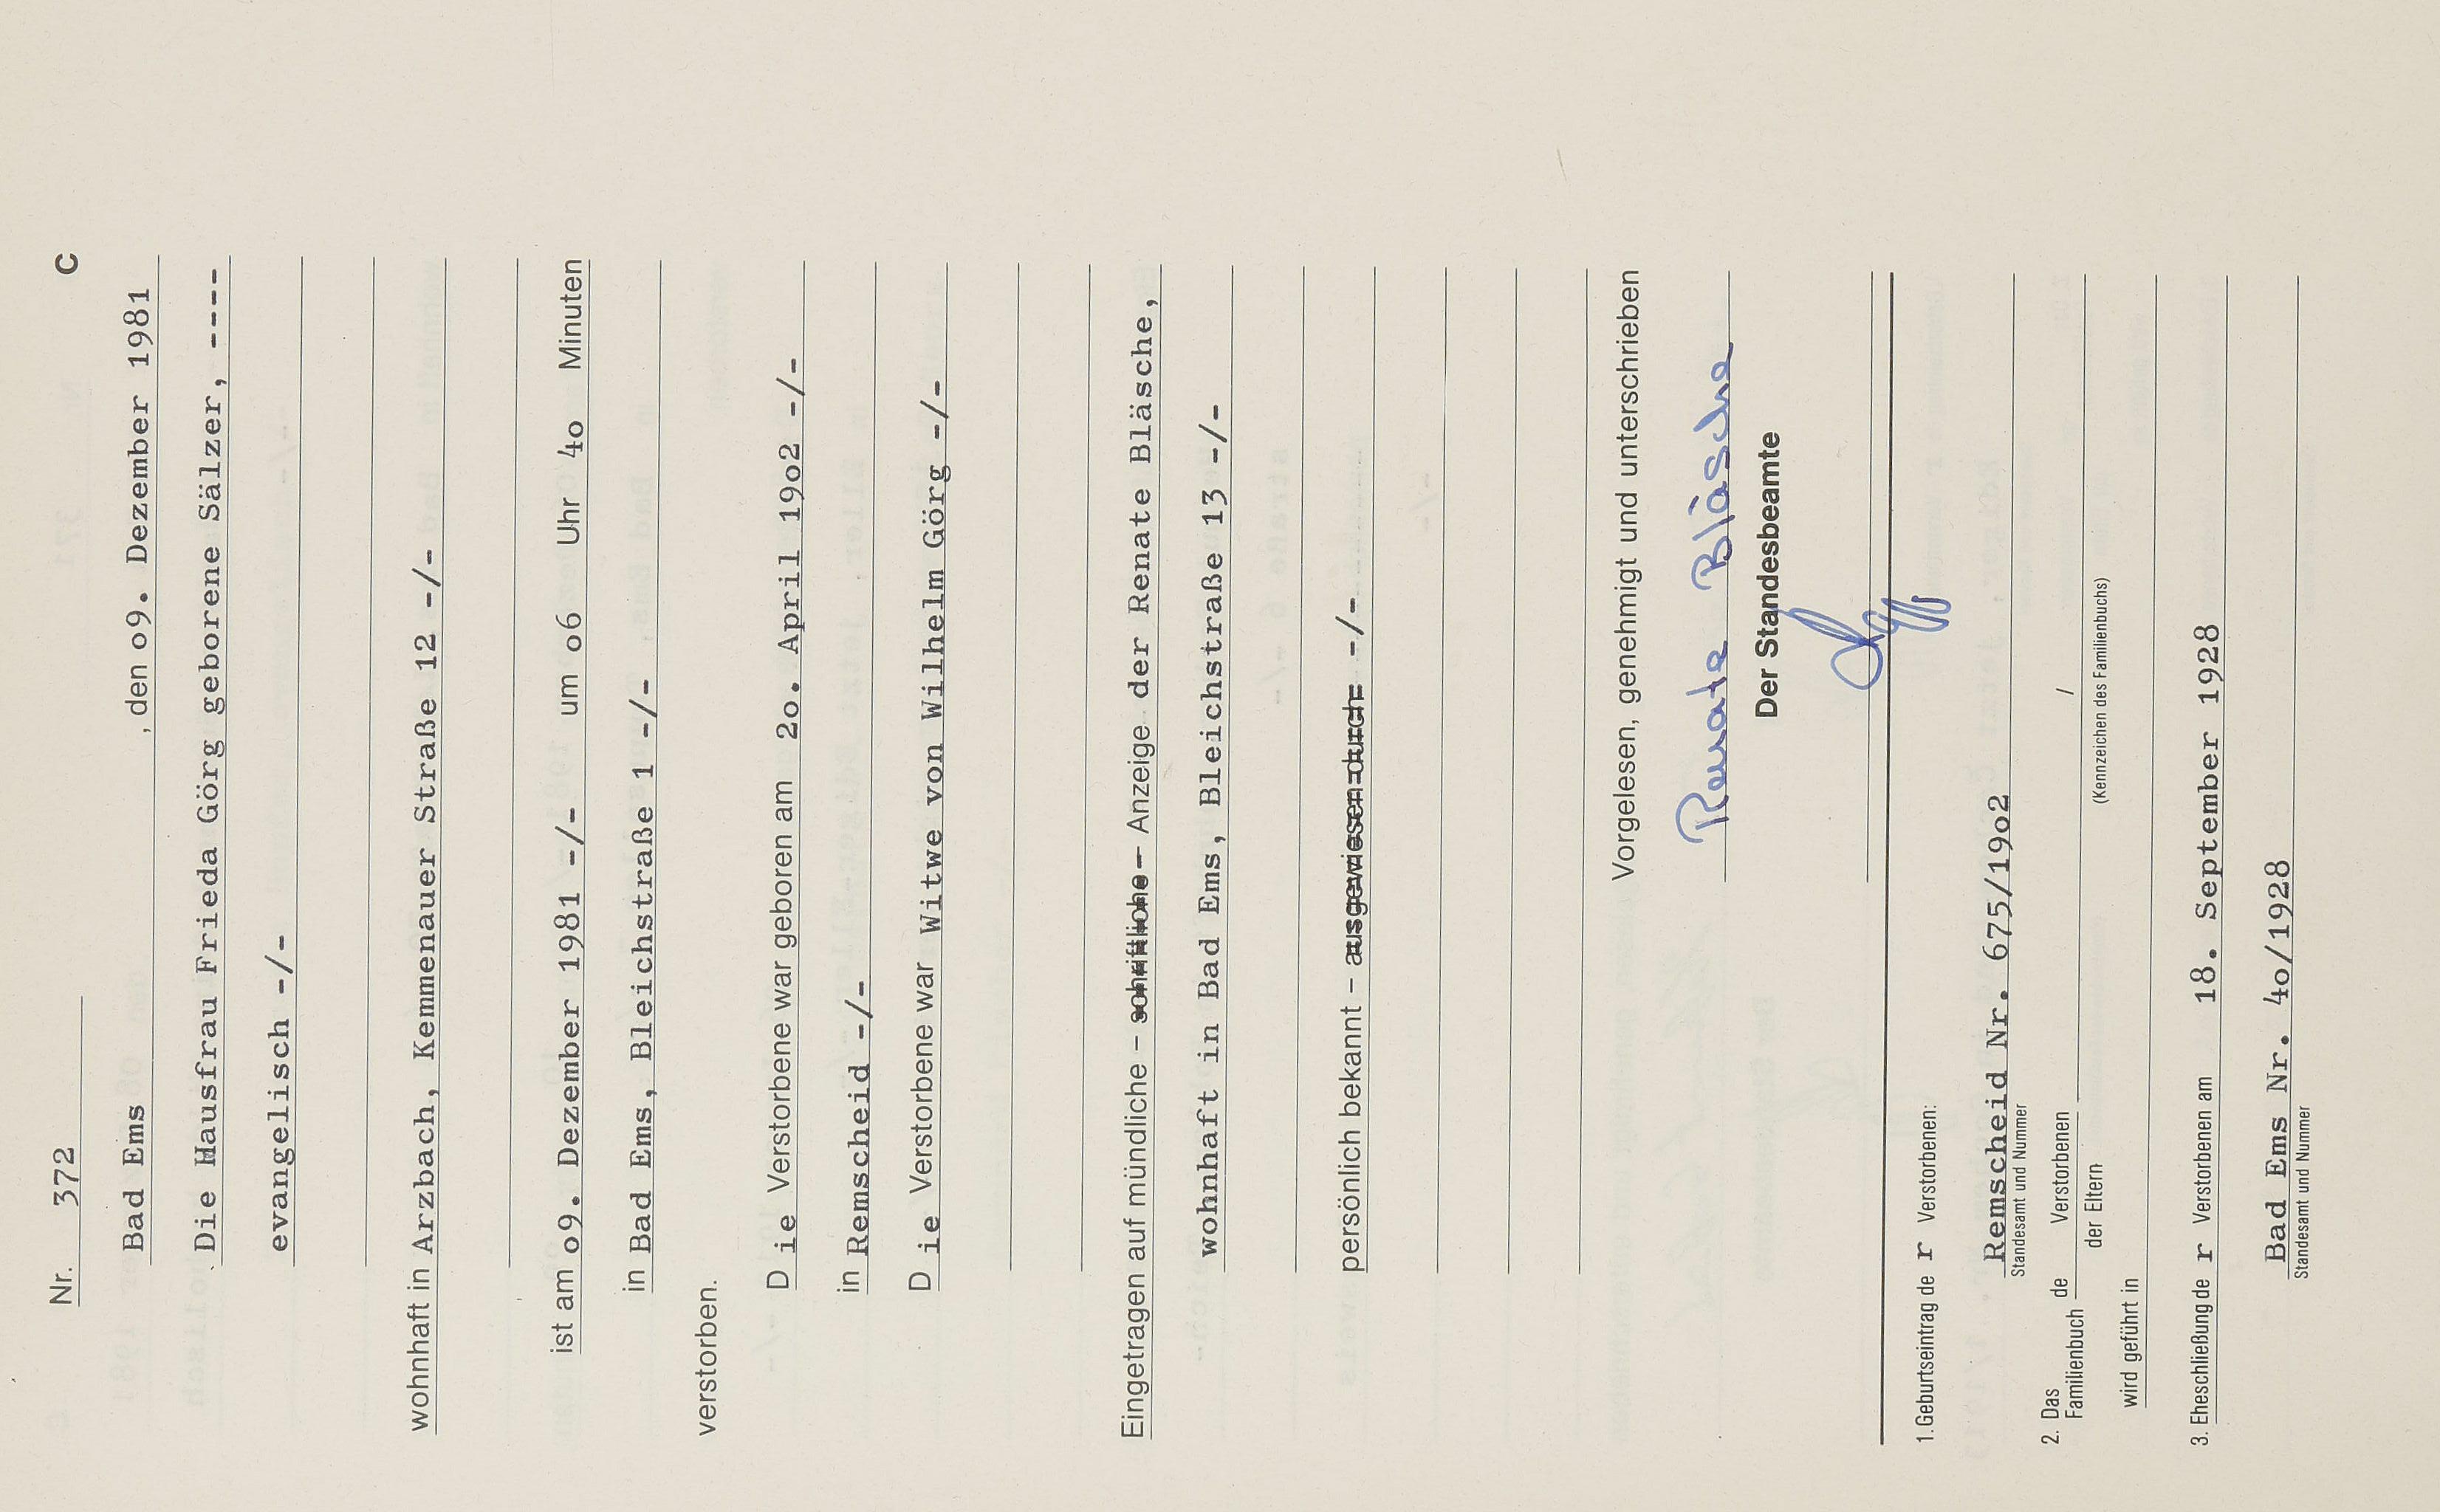 Nr. 372 C
Bad Ems , den o9. Dezember 1981
Die Hausfrau Frieda Görg geborene Sälzer, ----
evangelisch -/-
wohnhaft in Arzbach, Kemmenauer Straße 12 -/-
ist am o9. Dezember 1981 -/- um o6 Uhr 4o Minuten
in Bad Ems, Bleichstraße 1 -/-
verstorben.
D ie Verstorbene war geboren am 2o. April 19o2 -/-
in Remscheid -/-
D ie Verstorbene war Witwe von Wilhelm Görg -/-
Eingetragen auf mündliche – schriftliche – Anzeige der Renate Bläsche,
wohnhaft in Bad Ems, Bleichstraße 13 -/-
persönlich bekannt – ausgewiesen durch -/-
Vorgelesen, genehmigt und unterschrieben
Renate Bläsche
Der Standesbeamte
1. Geburtseintrag de r Verstorbenen:
Remscheid Nr. 675/19o2
Standesamt und Nummer
2. Das Familienbuch de Verstorbenen /
der Eltern (Kennzeichen des Familienbuchs)
wird geführt in
3. Eheschließung de r Verstorbenen am 18. September 1928
Bad Ems Nr. 4o/1928
Standesamt und Nummer